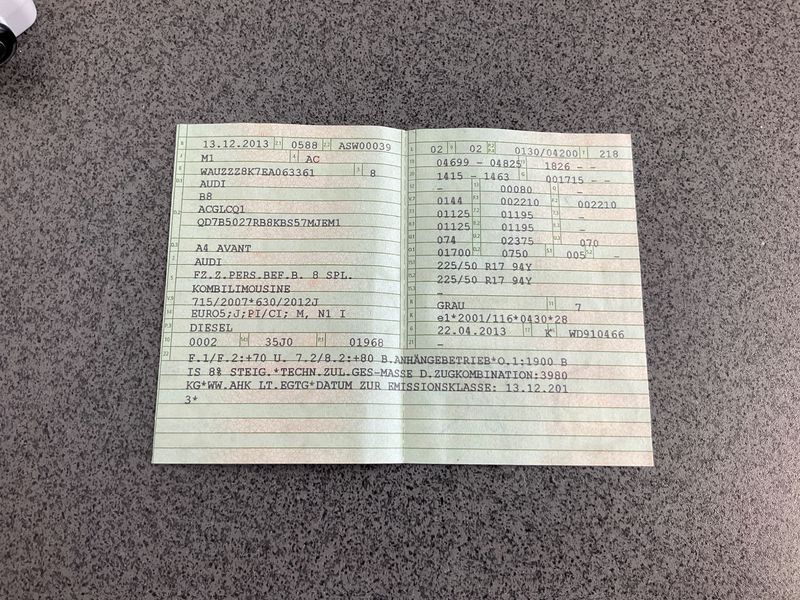 13.12.2013 0588 ASW00039
M1 AC
WAUZZZ8K7EA063361 8
AUDI
B8
ACGLCQ1
QD7B5027RB8KBS57MJEM1
A4 AVANT
AUDI
FZ.Z.PERS.BEF.B. 8 SPL.
KOMBILIMOUSINE
715/2007*630/2012J
EURO5;J;PI/CI; M, N1 I
DIESEL
0002 35J0 01968
02 02 0130/04200 218
04699 - 04825 1826 - -
1415 - 1463 001715 - -
- 00080 -
0144 002210 002210
01125 01195 -
01125 01195 -
074 02375 070
01700 0750 005 -
225/50 R17 94Y
225/50 R17 94Y
-
GRAU 7
e1*2001/116*0430*28
22.04.2013 K WD910466
-
F.1/F.2:+70 U. 7.2/8.2:+80 B.ANHÄNGEBETRIEB*O.1:1900 B
IS 8% STEIG.*TECHN.ZUL.GES-MASSE D.ZUGKOMBINATION:3980
KG*WW.AHK LT.EGTG*DATUM ZUR EMISSIONSKLASSE: 13.12.201
3*